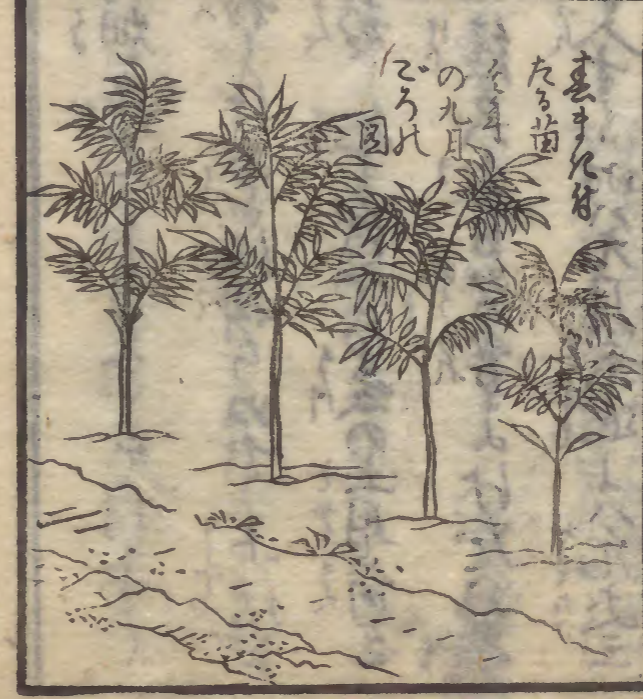 春まき付
たる苗
其年
の九月
ごろの
図